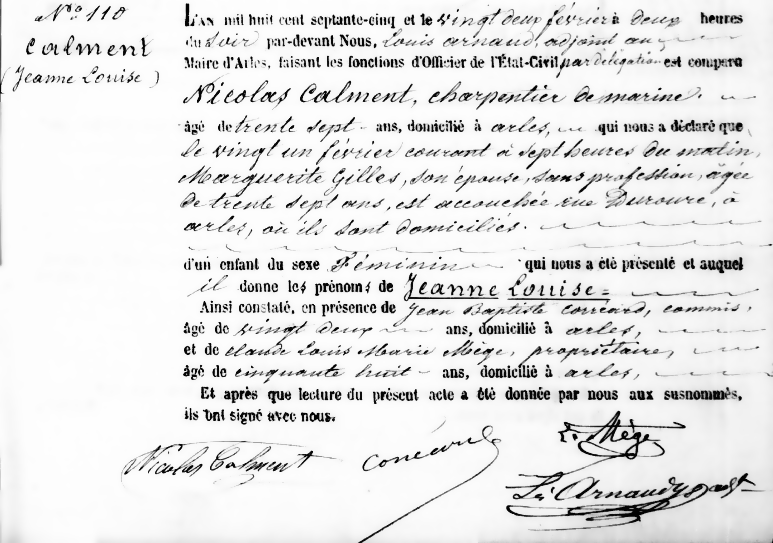 N° 110
Calment
(Jeanne Louise)
L'AN mil huit cent septante-cinq et le vingt deux février à deux heures
du soir par-devant Nous, Louis arnaud, adjoint au
Maire d'Arles, faisant les fonctions d'Officier de l'État-Civil par délégation est comparu
Nicolas Calment, charpentier de marine.
âgé de trente sept ans, domicilié à arles, qui nous a déclaré que
le vingt un février courant à sept heures du matin,
Marguerite Gilles, son épouse, sans profession, âgée
de trente sept ans, est accouchée rue Duroure, à
arles, où ils sont domiciliés.
d'un enfant du sexe Féminin qui nous a été présenté et auquel
il donne les prénoms de Jeanne Louise=
Ainsi constaté, en présence de Jean Baptiste corréard, commis,
âgé de vingt deux ans, domicilié à arles,
et de claude Louis Marie Mège, propriétaire,
âgé de cinquante huit - ans, domicilié à arles,
Et après que lecture du présent acte a été donnée par nous aux susnommés,
ils ont signé avec nous.
L. Mège
Nicolas Calment
Ls Arnaud